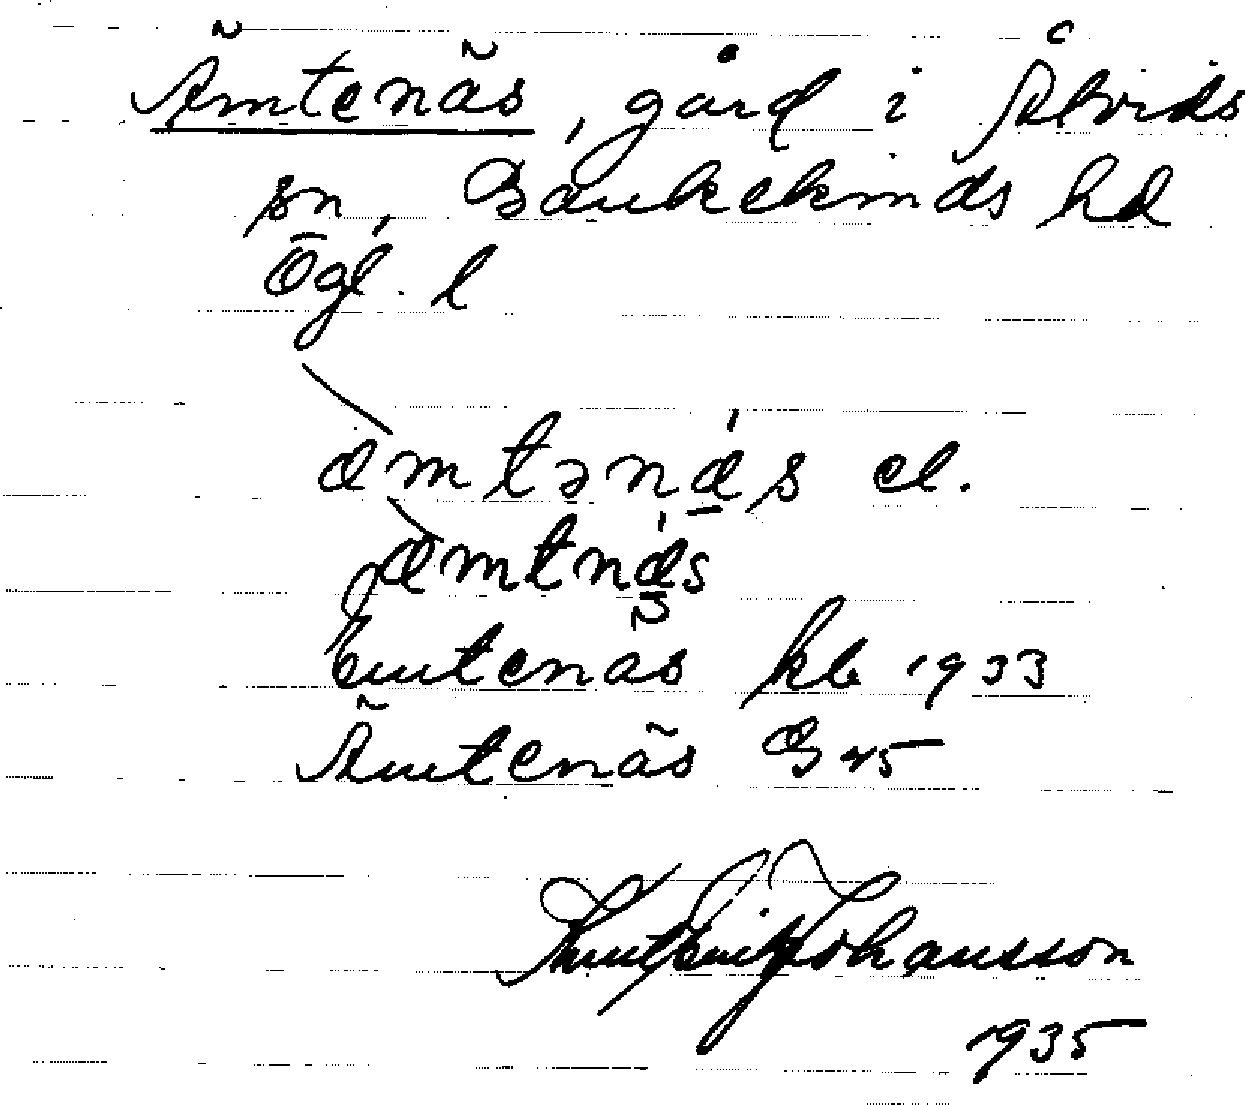 Ämtenäs, gård i Åtvids
sn, Bankekinds hd
Ögl. l
æmtənǽ̠s el.
æmtnǽ̠s
Emtenäs kb 1933
Ämtenäs G 45
Knut Erik Johansson
1935